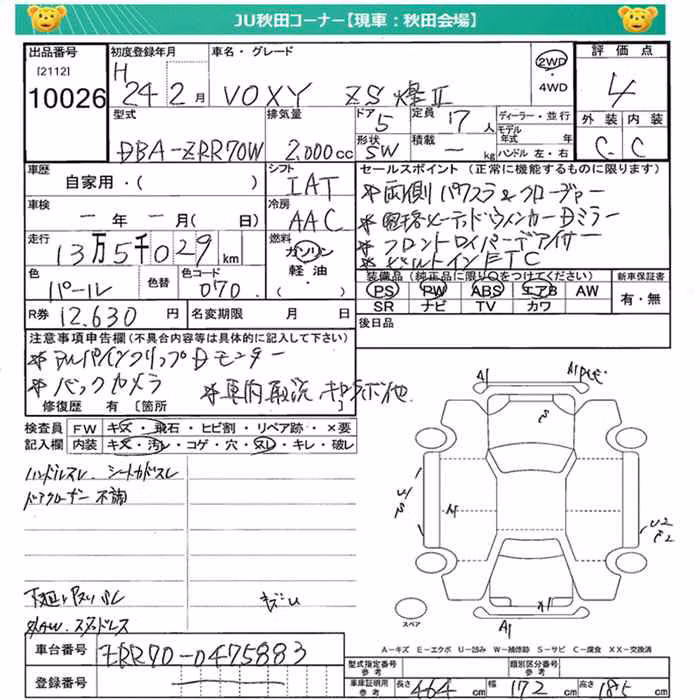 JU秋田コーナー【現車：秋田会場】
出品番号 初度登録年月 車名・グレード 評価点
[2112] H 2WD
10026 24 2月 VOXY ZS 煌Ⅱ ・4WD 4
型式 排気量 ドア 5 定員 7人 ディーラー・並行 外装 内装
モデル年式 年
DBA-ZRR70W 2,000cc 形状 SW 積載 ー kg ハンドル 左・右 C C
車歴 シフト セールスポイント（正常に機能するものに限ります）
自家用・( ) IAT *両側パワスラ&クロージャー
車検 冷房
ー年ー月(ー日) AAC
走行 燃料 *フロント
13万5千029km ガソリン *ビルトインETC
色 色替 色コード 軽油 装備品（純正品に限り○をつけてください） 新車保証書
パール 070 ・( ) PS PW ABS エアB AW 有・無
SR ナビ TV カワ
R券 12,630円 名変期限 月 日 後日品
注意事項申告欄（不具合内容等は具体的に記入して下さい）
*アルパインフリップDモニター
*バックカメラ *車内取説
修復歴 有 [箇所 ]
検査員 FW キズ・飛石・ヒビ割・リペア跡・×要
記入欄 内装 キズ・汚レ・コゲ・穴・スレ・キレ・破レ
ハンドルスレ シートカドスレ
ドアクローザー不調
A1
A1
S
U1
S
U2
下廻り
キズU
スタッドレス
X1
A1
スペア
A-キズ E-エクボ U-凹み W-補修跡 S-サビ C-腐食 XX-交換済
車台番号 ZRR70-0475883
登録番号
型式指定番号 参考 類別区分番号 参考
車庫証明用 参考 長さ 464cm 幅 172cm 高さ 185cm